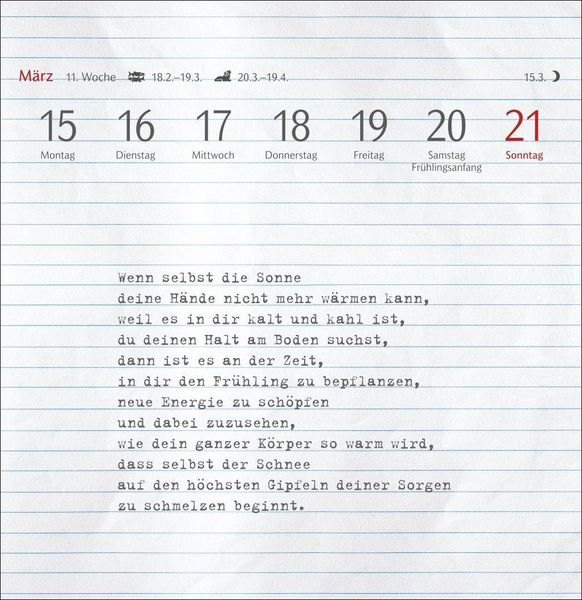 März 11. Woche 18.2.–19.3. 20.3.–19.4. 15.3.
15 16 17 18 19 20 21
Montag Dienstag Mittwoch Donnerstag Freitag Samstag Sonntag
Frühlingsanfang
Wenn selbst die Sonne
deine Hände nicht mehr wärmen kann,
weil es in dir kalt und kahl ist,
du deinen Halt am Boden suchst,
dann ist es an der Zeit,
in dir den Frühling zu bepflanzen,
neue Energie zu schöpfen
und dabei zuzusehen,
wie dein ganzer Körper so warm wird,
dass selbst der Schnee
auf den höchsten Gipfeln deiner Sorgen
zu schmelzen beginnt.